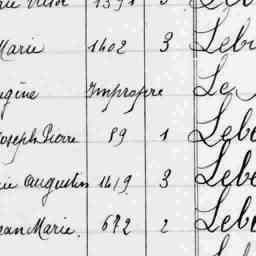 1391
Marie 1402 3 Leb
gène Impropre Le
Joseph Pierre 89 1 Leb
ie Augustin 1419 3 Leb
ean Marie. 672 2 Leb